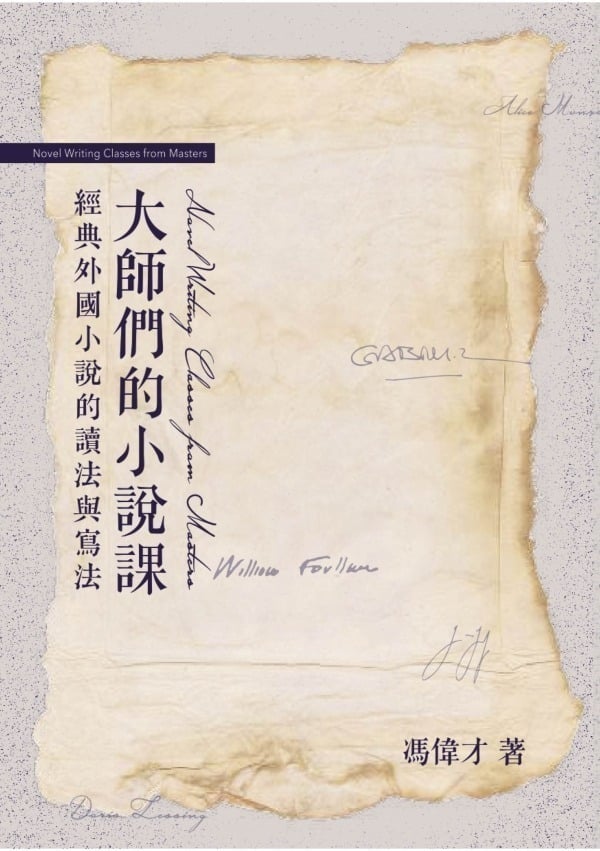 Novel Writing Classes from Masters
Novel Writing Classes from Masters
大師們的小說課
經典外國小說的讀法與寫法
William Faulkner
Doris Lessing
馮偉才 著